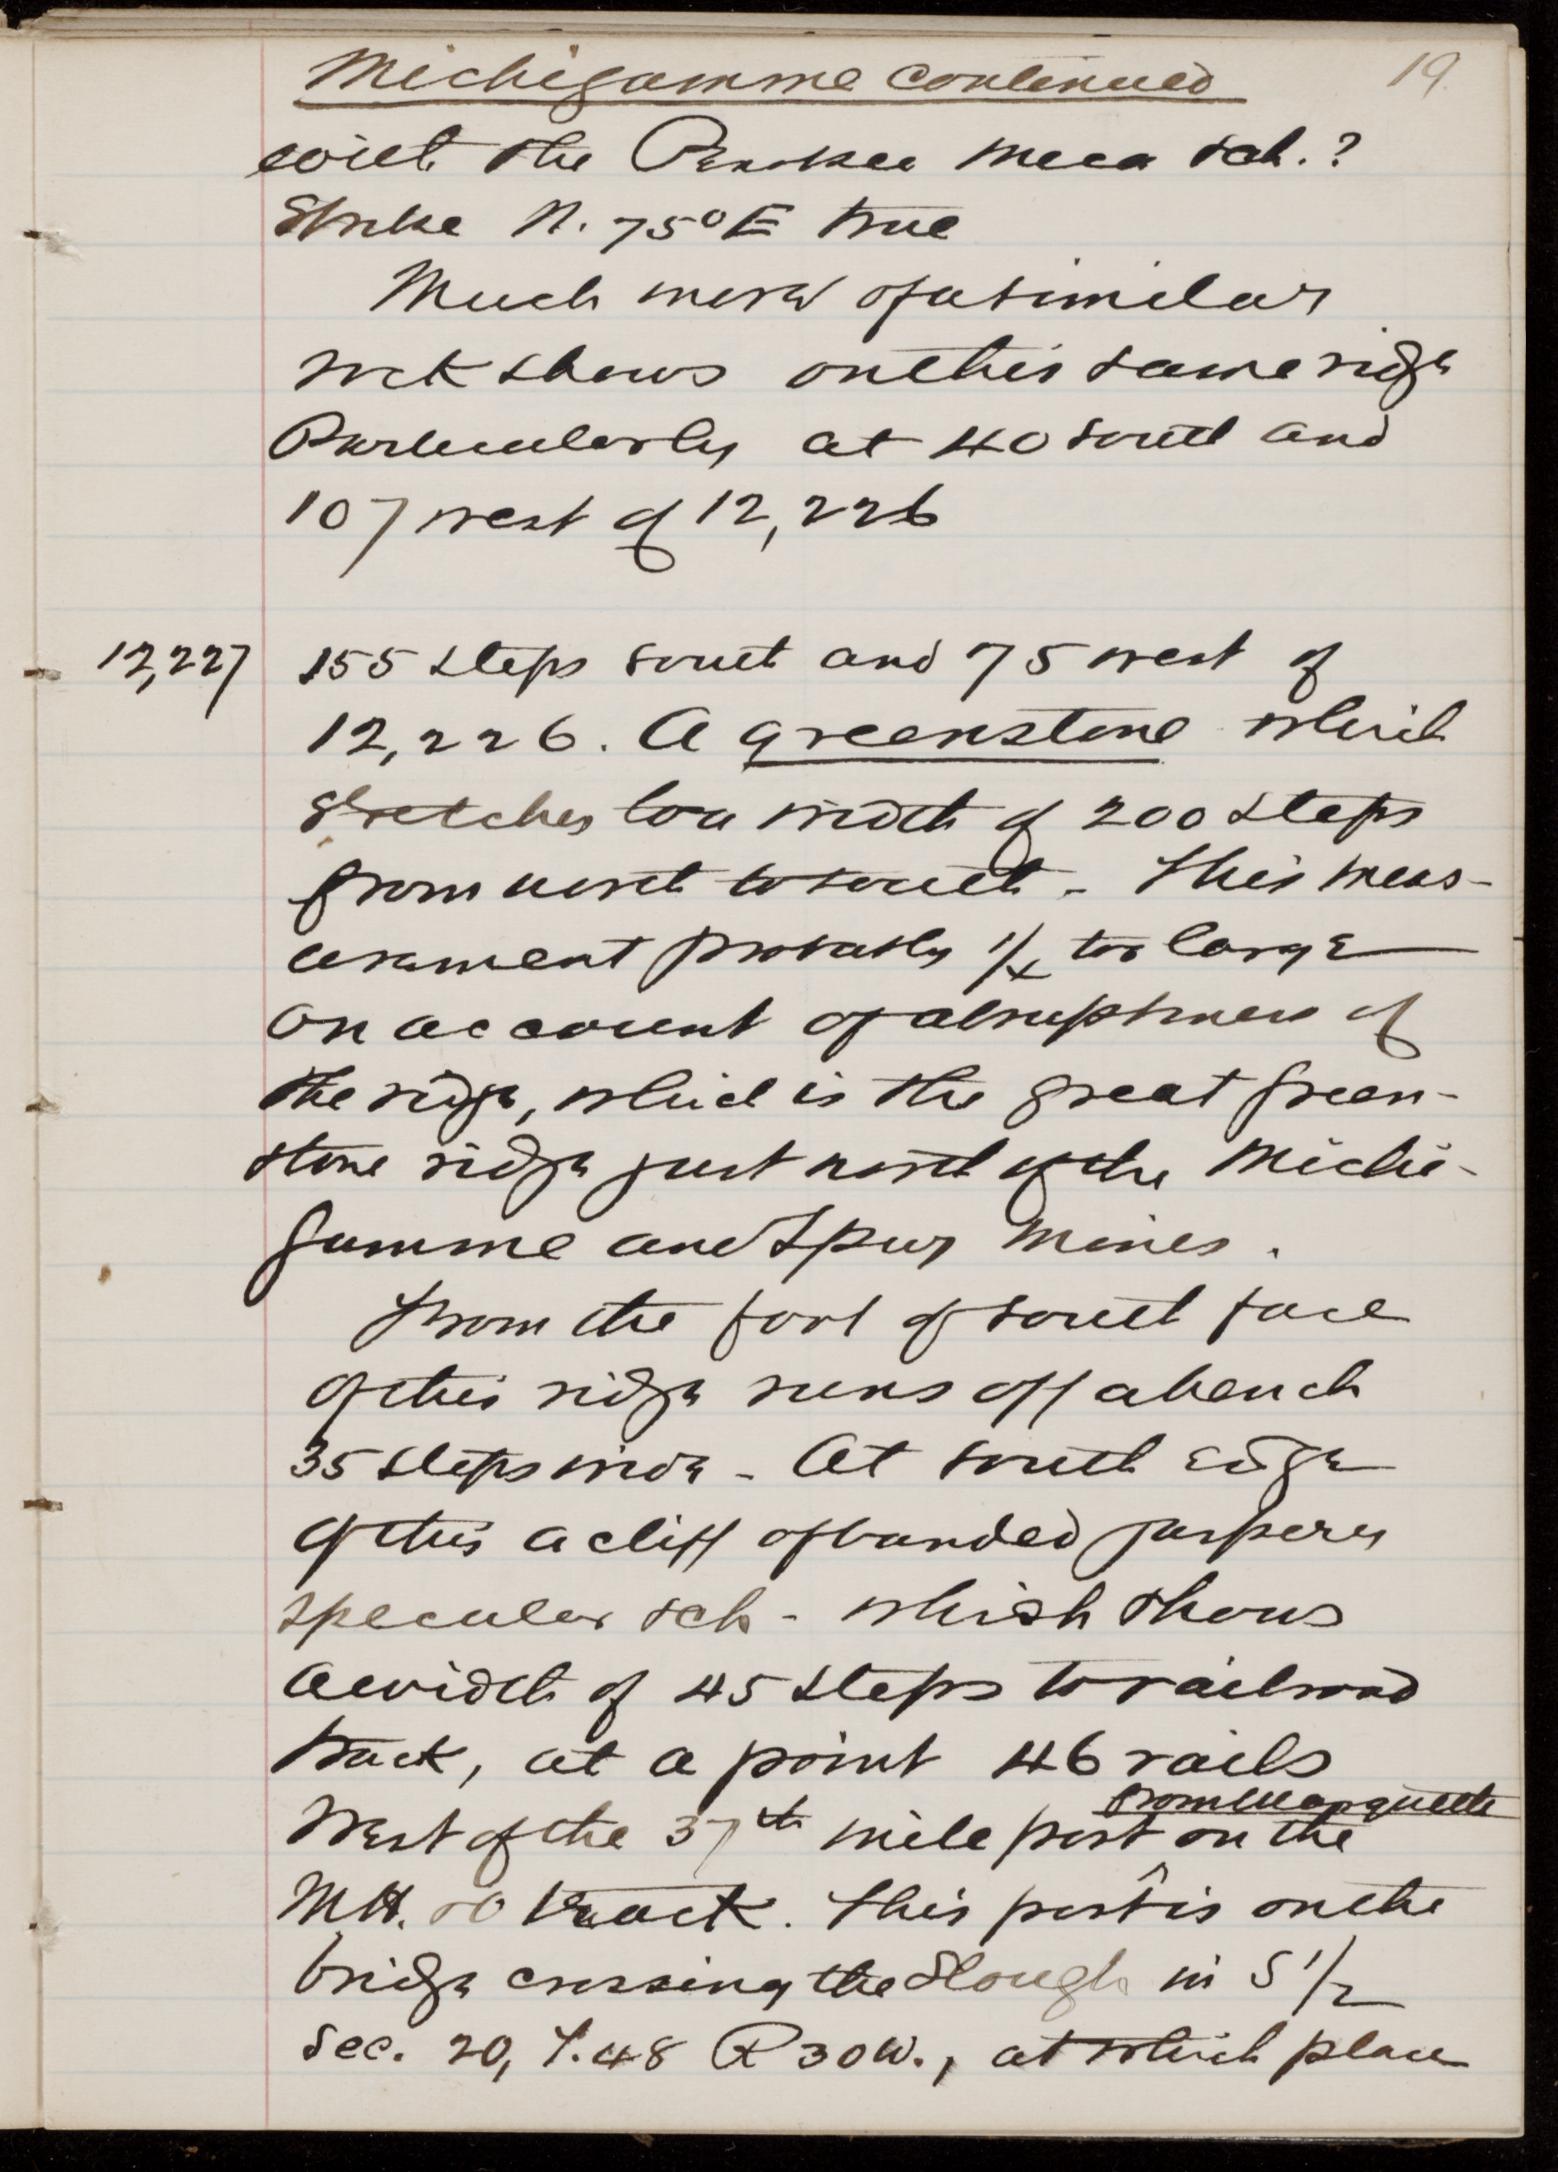 Michigamme continued
19.
with the Penokee mica sch.?
Strike N. 75° E true
Much more of a similar
rock shows on this same ridge
Particularly at 40 south and
107 west of 12,226
12,227 155 steps south and 75 west of
12,226. A greenstone which
stretches to a width of 200 steps
from north to south - This meas-
urement probably 1/4 too large
on account of abruptness of
the ridge, which is the great green-
stone ridge just north of the Michi-
gamme and Spurr Mines.
From the foot of south face
of this ridge runs off a bench
35 steps wide - At south edge
of this a cliff of banded jaspery
specular sch - which shows
a width of 45 steps to railroad
track, at a point 46 rails
from Marquette
West of the 37th mile post on the
M.H. & O track. This post is on the
bridge crossing the slough in S 1/2
Sec. 20, T.48 R 30W., at which place